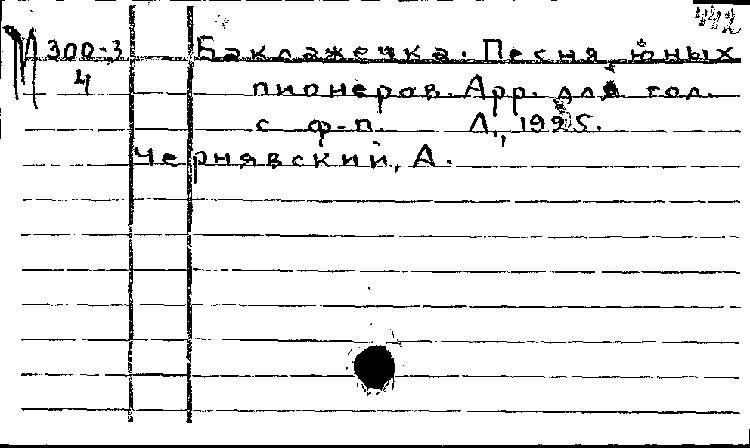 442
М 300-3 Баклажечка. Песня юных
4 пионеров. Арр. для гол.
с ф-п. Л., 1925.
Чернявский, А.